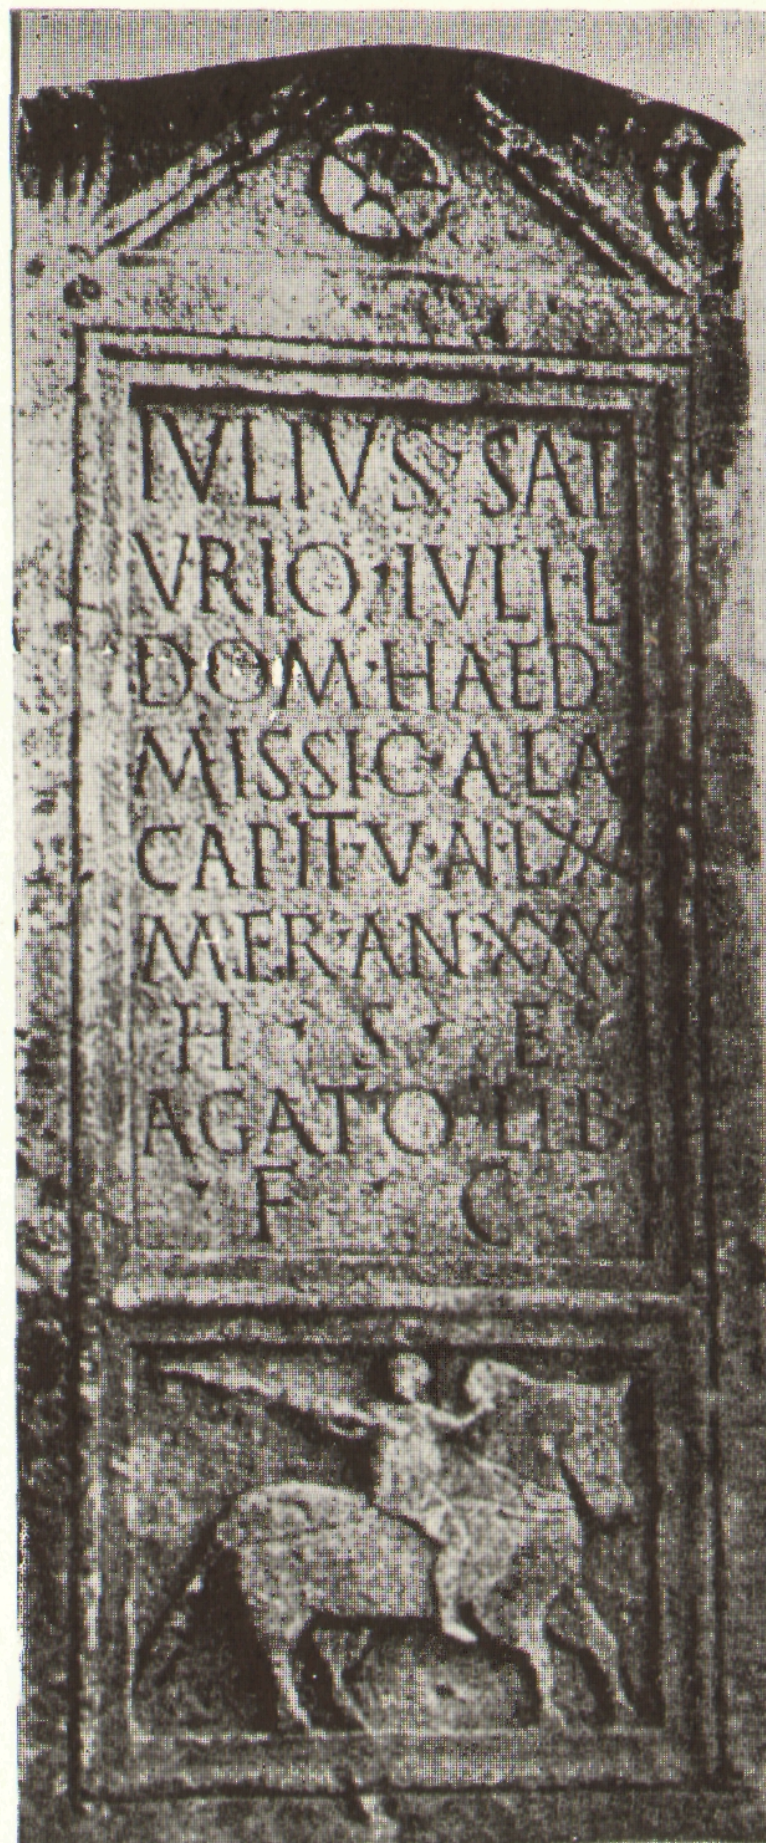 IVLIVS SAT
VRIO·IVLI·L
DOM·HAED
MISSIC·ALA
CAPIT·V·AN·LX
MER·AN·XXX
H·S·E·
AGATO·LIB
·F·C